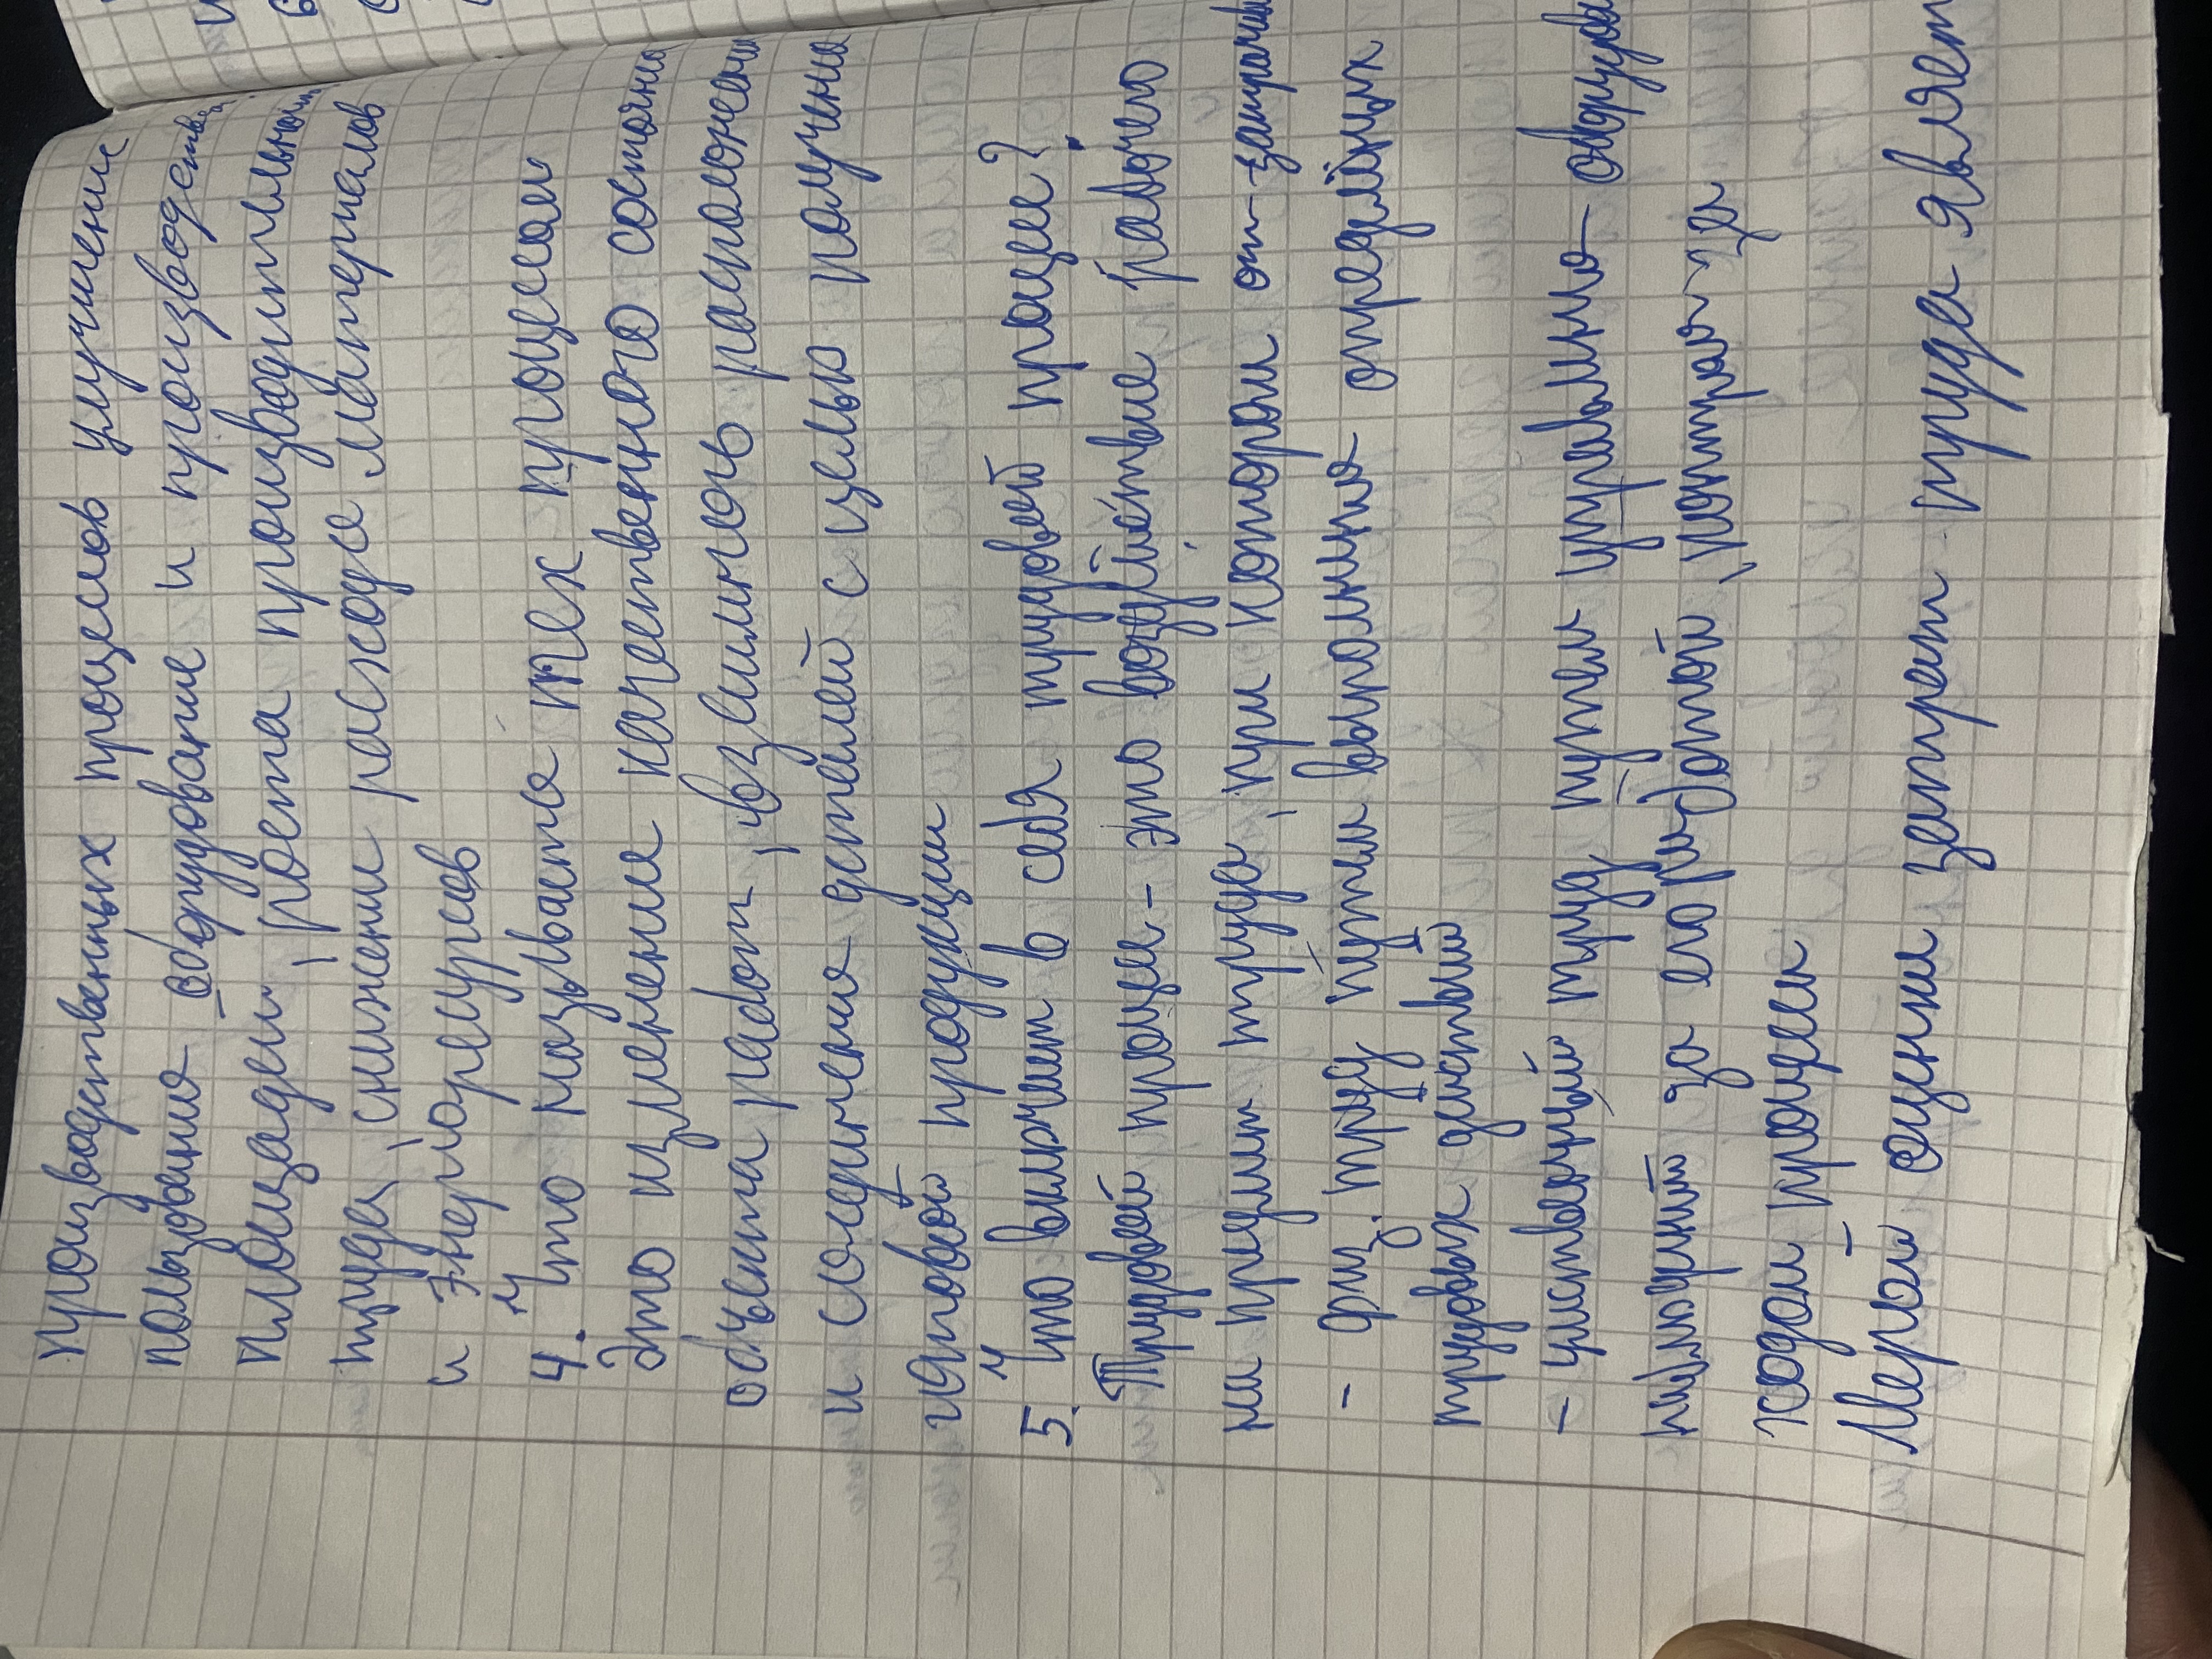 производственных процессов улучшение
пользования оборудование и производств
площадей, роста производительност
труда, снижение расходе материалов
и энергоресурсов
4. Что называется тех процессом
Это изменение качественного состояни
объекта работ, взаимного расположени
и соединения деталей с целью получени
готовой продукции
5. Что включает в себя трудовой процесс?
Трудовой процесс - это воздействие рабочего
на предмет труда, при котором от-
- физ. труд путем выполнения определённых
трудовых действий
- умственный труд путем управлению оборудова
за его работой, контроля за
ходом процесса
Мерой оценки затрат труда являет